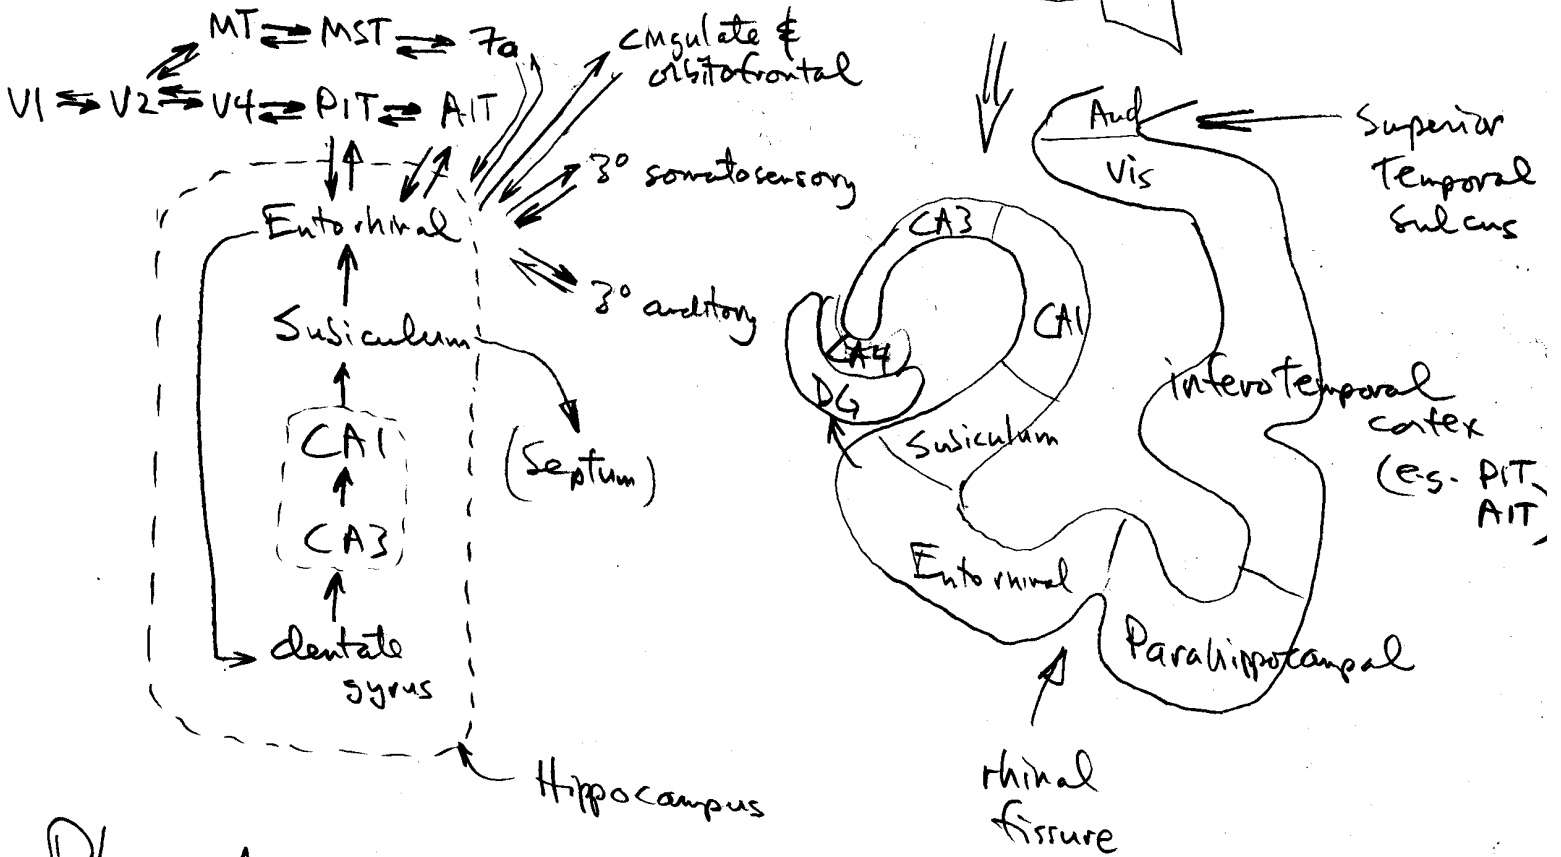 MT MST 7a
V1 V2 V4 PIT AIT
cingulate &
orbitofrontal
3° somatosensory
3° auditory
Entorhinal
Subiculum
(Septum)
CA1
CA3
dentate
gyrus
Hippocampus
Aud
Vis
Superior
Temporal
Sulcus
CA3
CA1
CA4
DG
Subiculum
inferotemporal
cortex
(e.g. PIT,
AIT)
Entorhinal
Parahippocampal
rhinal
fissure